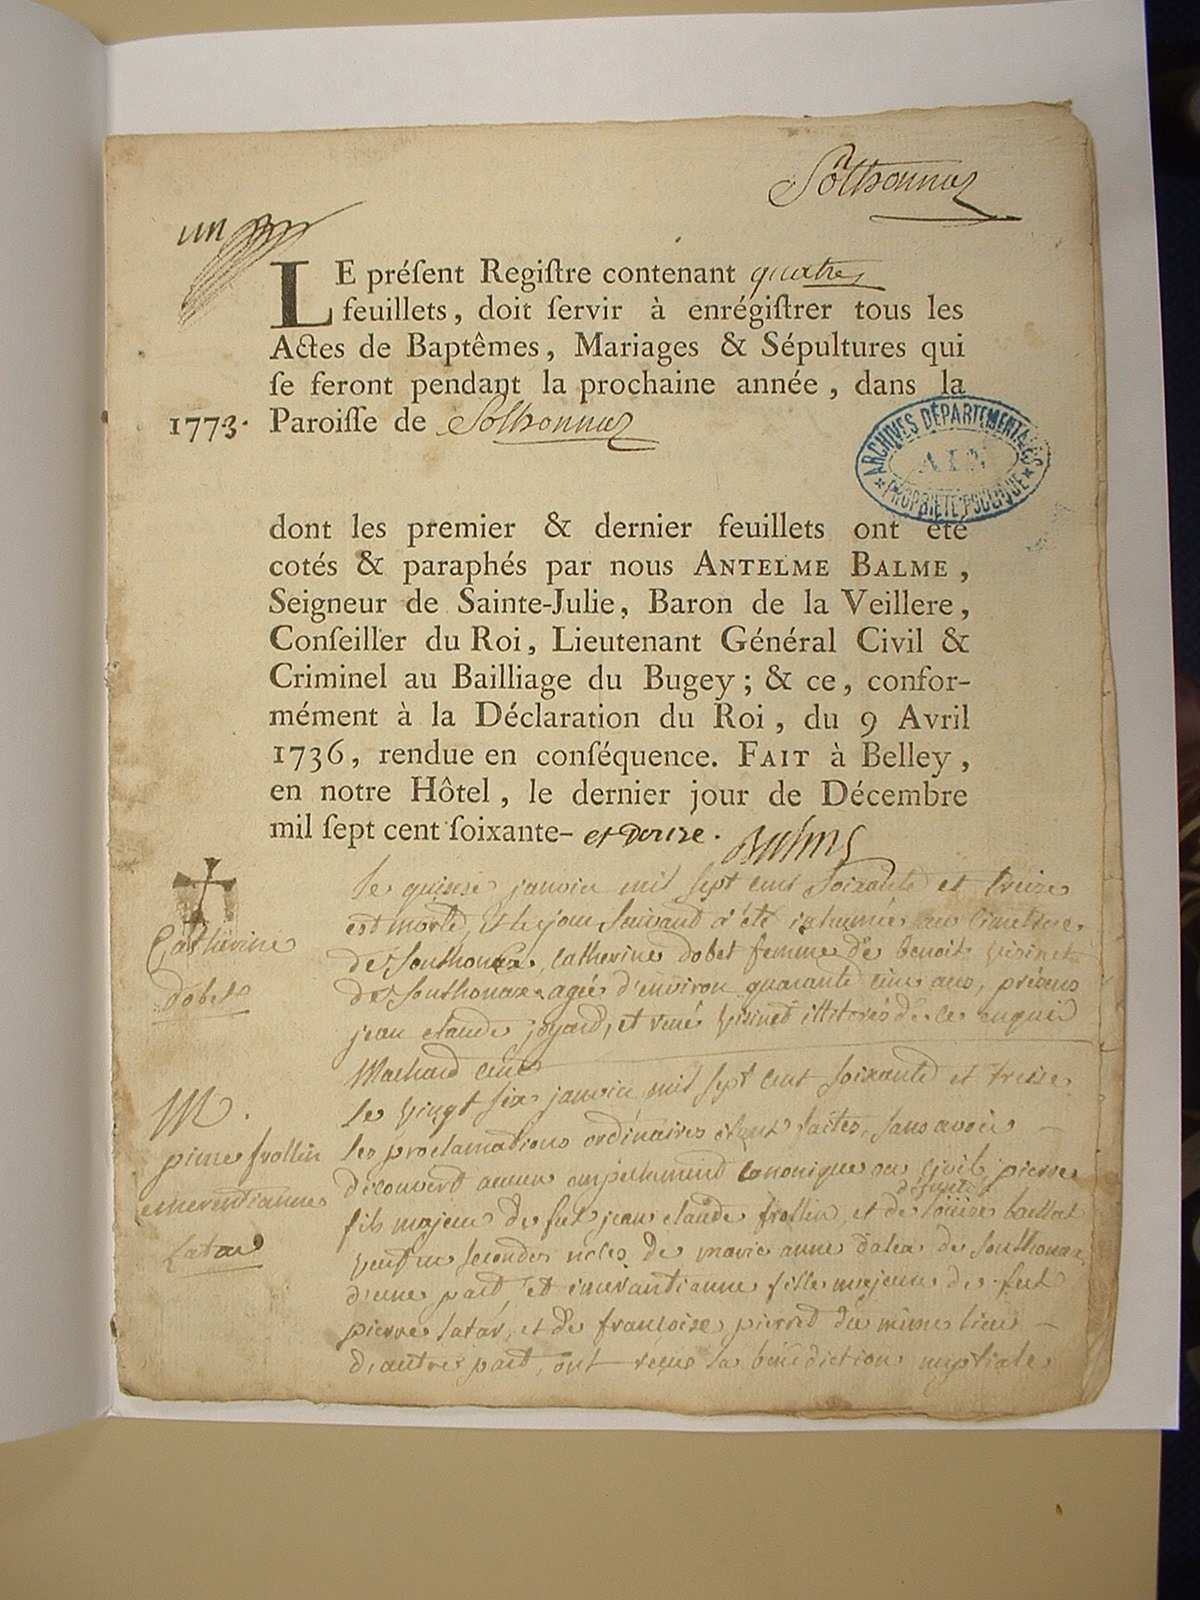 Solhonnaz
un
LE préſent Regiſtre contenant quatre
feuillets, doit ſervir à enrégiſtrer tous les
Actes de Baptêmes, Mariages & Sépultures qui
ſe feront pendant la prochaine année, dans la
1773. Paroiſſe de Solhonnaz
ARCHIVES DÉPARTEMENTALES
AIN
PROPRIÉTÉ PUBLIQUE
dont les premier & dernier feuillets ont été
cotés & paraphés par nous ANTELME BALME,
Seigneur de Sainte-Julie, Baron de la Veillere,
Conſeiller du Roi, Lieutenant Général Civil &
Criminel au Bailliage du Bugey; & ce, confor-
mément à la Déclaration du Roi, du 9 Avril
1736, rendue en conſéquence. FAIT à Belley,
en notre Hôtel, le dernier jour de Décembre
mil ſept cent ſoixante- et douze. Balme
Catherine
dobet
le quinze janvier mil sept cent soixante et treize
est morte, et le jour suivant a été inhumée au cimetiere
de Southonax, catherine dobet femme de benoit
de Southonax agée d'environ quarante cinq ans, présens
jean claude joyard, et rené illiterés de ce enquis
Machard curé
M.
pierre frollin
emerentianne
Latar
le vingt six janvier mil sept cent soixante et treize
les proclamations ordinaires étant faites, sans avoir
découvert aucun empechement canonique ou civil, pierre
fils majeur de feu jean claude frollin, et de défunte louise
veuf en secondes noces de marie anne de Southonax
d'une part, et emerantianne fille majeure de feu
pierre latar, et de francoise pierret du même lieu
d'autre part, ont reçu la bénédiction nuptiale